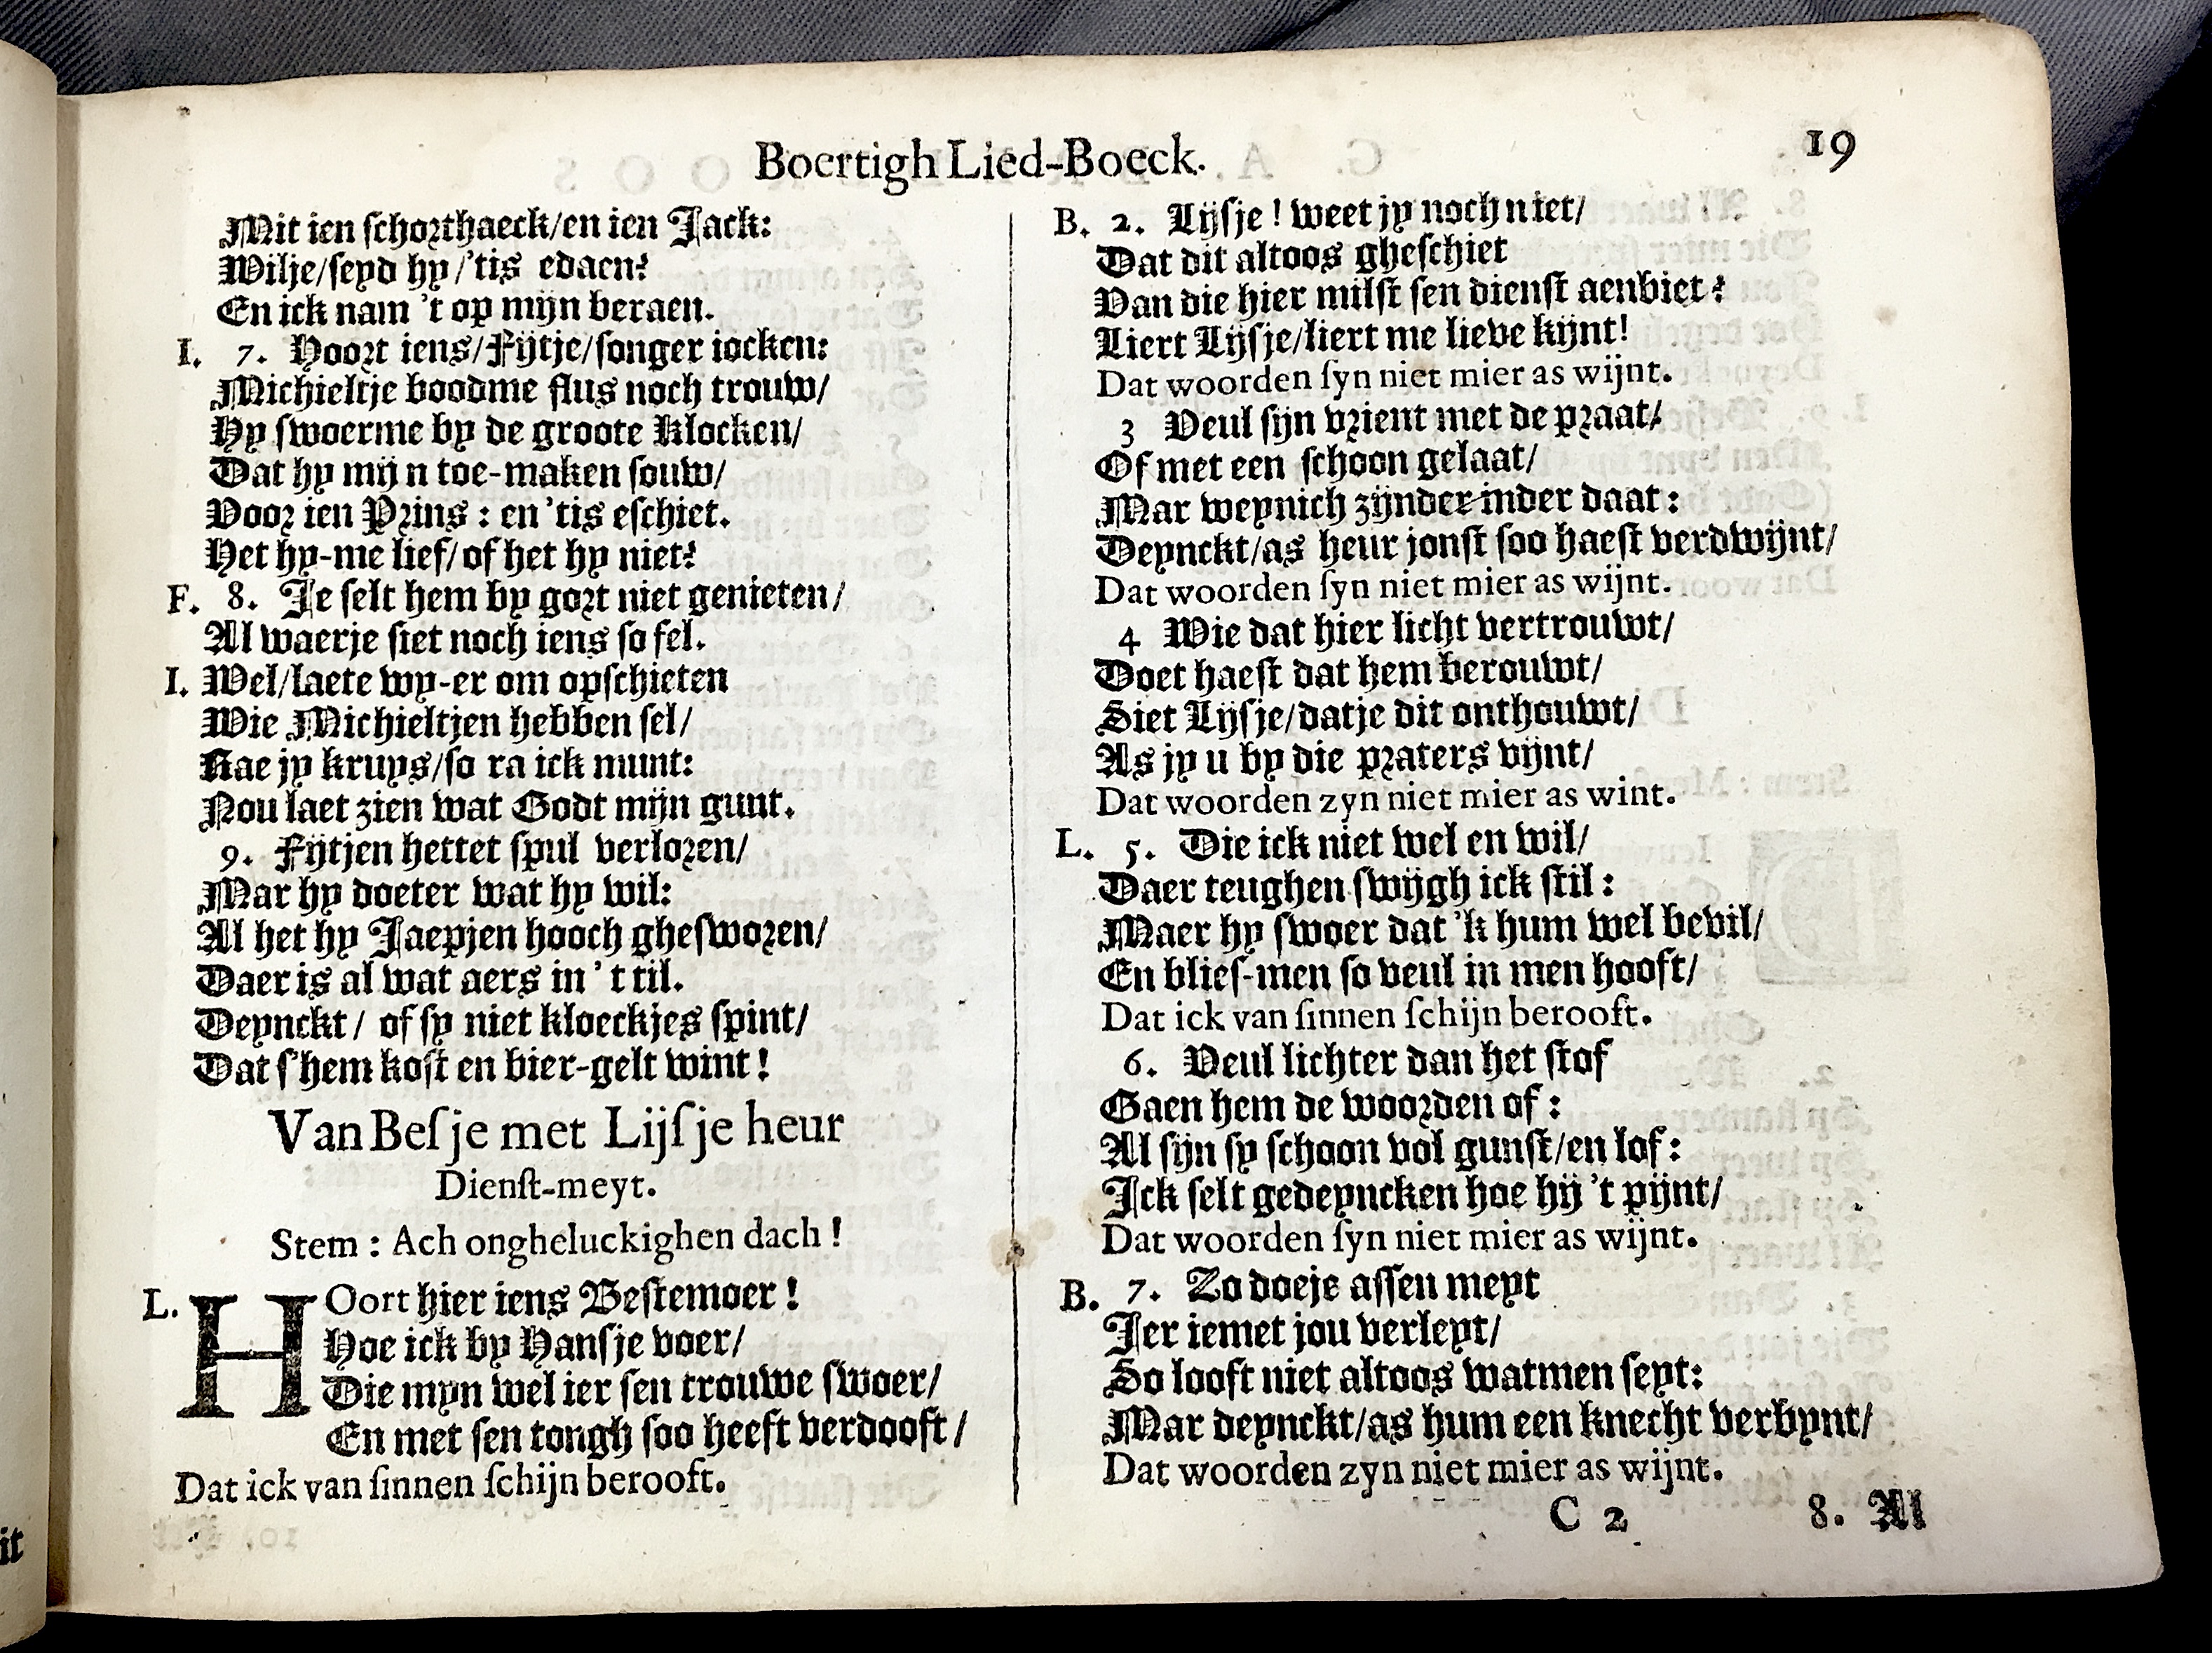 Boertigh Lied-Boeck.
19
Mit ien schorthaeck/en ien Jack:
Wilje/seyd hy/'tis edaen?
En ick nam 't op mijn beraen.
I. 7. Hoort iens/Fijtje/songer iocken:
Michieltje boodme flus noch trouw/
Hy swoerme by de groote Klocken/
Dat hy mijn toe-maken souw/
Voor ien Prins: en 'tis eschiet.
Het hy-me lief/of het hy niet?
F. 8. Je selt hem by gort niet genieten/
Al waerje siet noch iens so fel.
I. Wel/laete wy-er om opschieten
Wie Michieltjen hebben sel/
Kae jy kruys/so ra ick munt:
Nou laet zien wat Godt mijn gunt.
9. Fijtjen hettet spul verloren/
Mar hy doeter wat hy wil:
Al het hy Jaepjen hooch ghesworen/
Daer is al wat aers in 't til.
Deynckt/ of sy niet kloeckjes spint/
Dat s'hem kost en bier-gelt wint!
Van Besje met Lijsje heur
Dienst-meyt.
Stem: Ach ongheluckighen dach!
L. HOort hier iens Bestemoer!
Hoe ick by Hansje voer/
Die myn wel ier sen trouwe swoer/
En met sen tongh soo heeft verdooft/
Dat ick van sinnen schijn berooft.
B. 2. Lijsje! weet jy noch niet/
Dat dit altoos gheschiet
Van die hier milst sen dienst aenbiet?
Liert Lijsje/liert me lieve kijnt!
Dat woorden syn niet mier as wijnt.
3 Veul sijn vrient met de praat/
Of met een schoon gelaat/
Mar weynich zijnder inder daat:
Deynckt/as heur jonst soo haest verdwijnt/
Dat woorden syn niet mier as wijnt.
4 Wie dat hier licht vertrouwt/
Doet haest dat hem berouwt/
Siet Lijsje/datje dit onthouwt/
As jy u by die praters vijnt/
Dat woorden zyn niet mier as wint.
L. 5. Die ick niet wel en wil/
Daer teughen swijgh ick stil:
Maer hy swoer dat 'k hum wel bevil/
En blies-men so veul in men hooft/
Dat ick van sinnen schijn berooft.
6. Veul lichter dan het stof
Gaen hem de woorden of:
Al sijn sy schoon vol gunst/en lof:
Ick selt gedeyncken hoe hij 't pijnt/
Dat woorden syn niet mier as wijnt.
B. 7. Zo doeje assen meyt
Ier iemet jou verleyt/
So looft niet altoos watmen seyt:
Mar deynckt/as hum een knecht verbynt/
Dat woorden zyn niet mier as wijnt.
C 2
8. Al
it